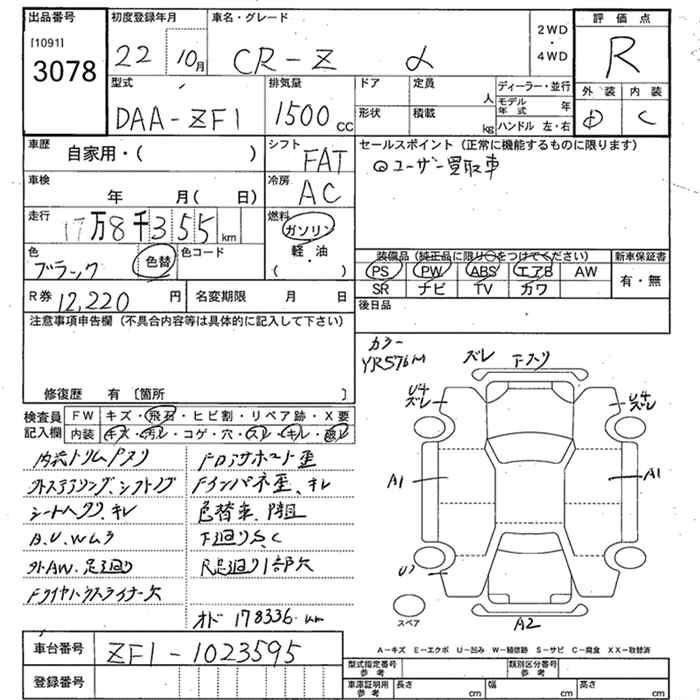 出品番号
[1091]
3078
初度登録年月
22年 10月
車名・グレード
CR-Z α
2WD
・
4WD
評価点
R
外装 内装
D C
型式
DAA-ZF1
排気量
1500 CC
ドア
形状
定員 人
積載 kg
ディーラー・並行
モデル年式 年
ハンドル 左・右
車歴
自家用・( )
シフト
FAT
セールスポイント (正常に機能するものに限ります)
⊙ユーザー買取車
車検
年 月( 日)
冷房
AC
走行
17万8千355 km
燃料
ガソリン
軽・油
( )
色
ブラック
色替
色コード
装備品 (純正品に限り○をつけてください)
PS PW ABS エアB AW
SR ナビ TV カワ
新車保証書
有・無
R券 12,220 円
名変期限 月 日
後日品
注意事項申告欄 (不具合内容等は具体的に記入して下さい)
修復歴 有 〔箇所 〕
検査員記入欄
FW キズ・飛石・ヒビ割・リペア跡・X要
内装 キズ・汚レ・コゲ・穴・スレ・キレ・破レ
シートヘタリ、キレ
色替車
外AW、足廻り
下廻りS,C
オド 178336 km
カラー
YR576M
ズレ 下スリ
U4
ズレ
U4
ズレ
A1
A1
A2
スペア
A-キズ E-エクボ U-凹み W-補修跡 S-サビ C-腐食 XX-取替済
車台番号
ZF1-1023595
登録番号
型式指定番号
参考
類別区分番号
参考
車庫証明用
参考
長さ cm
幅 cm
高さ cm